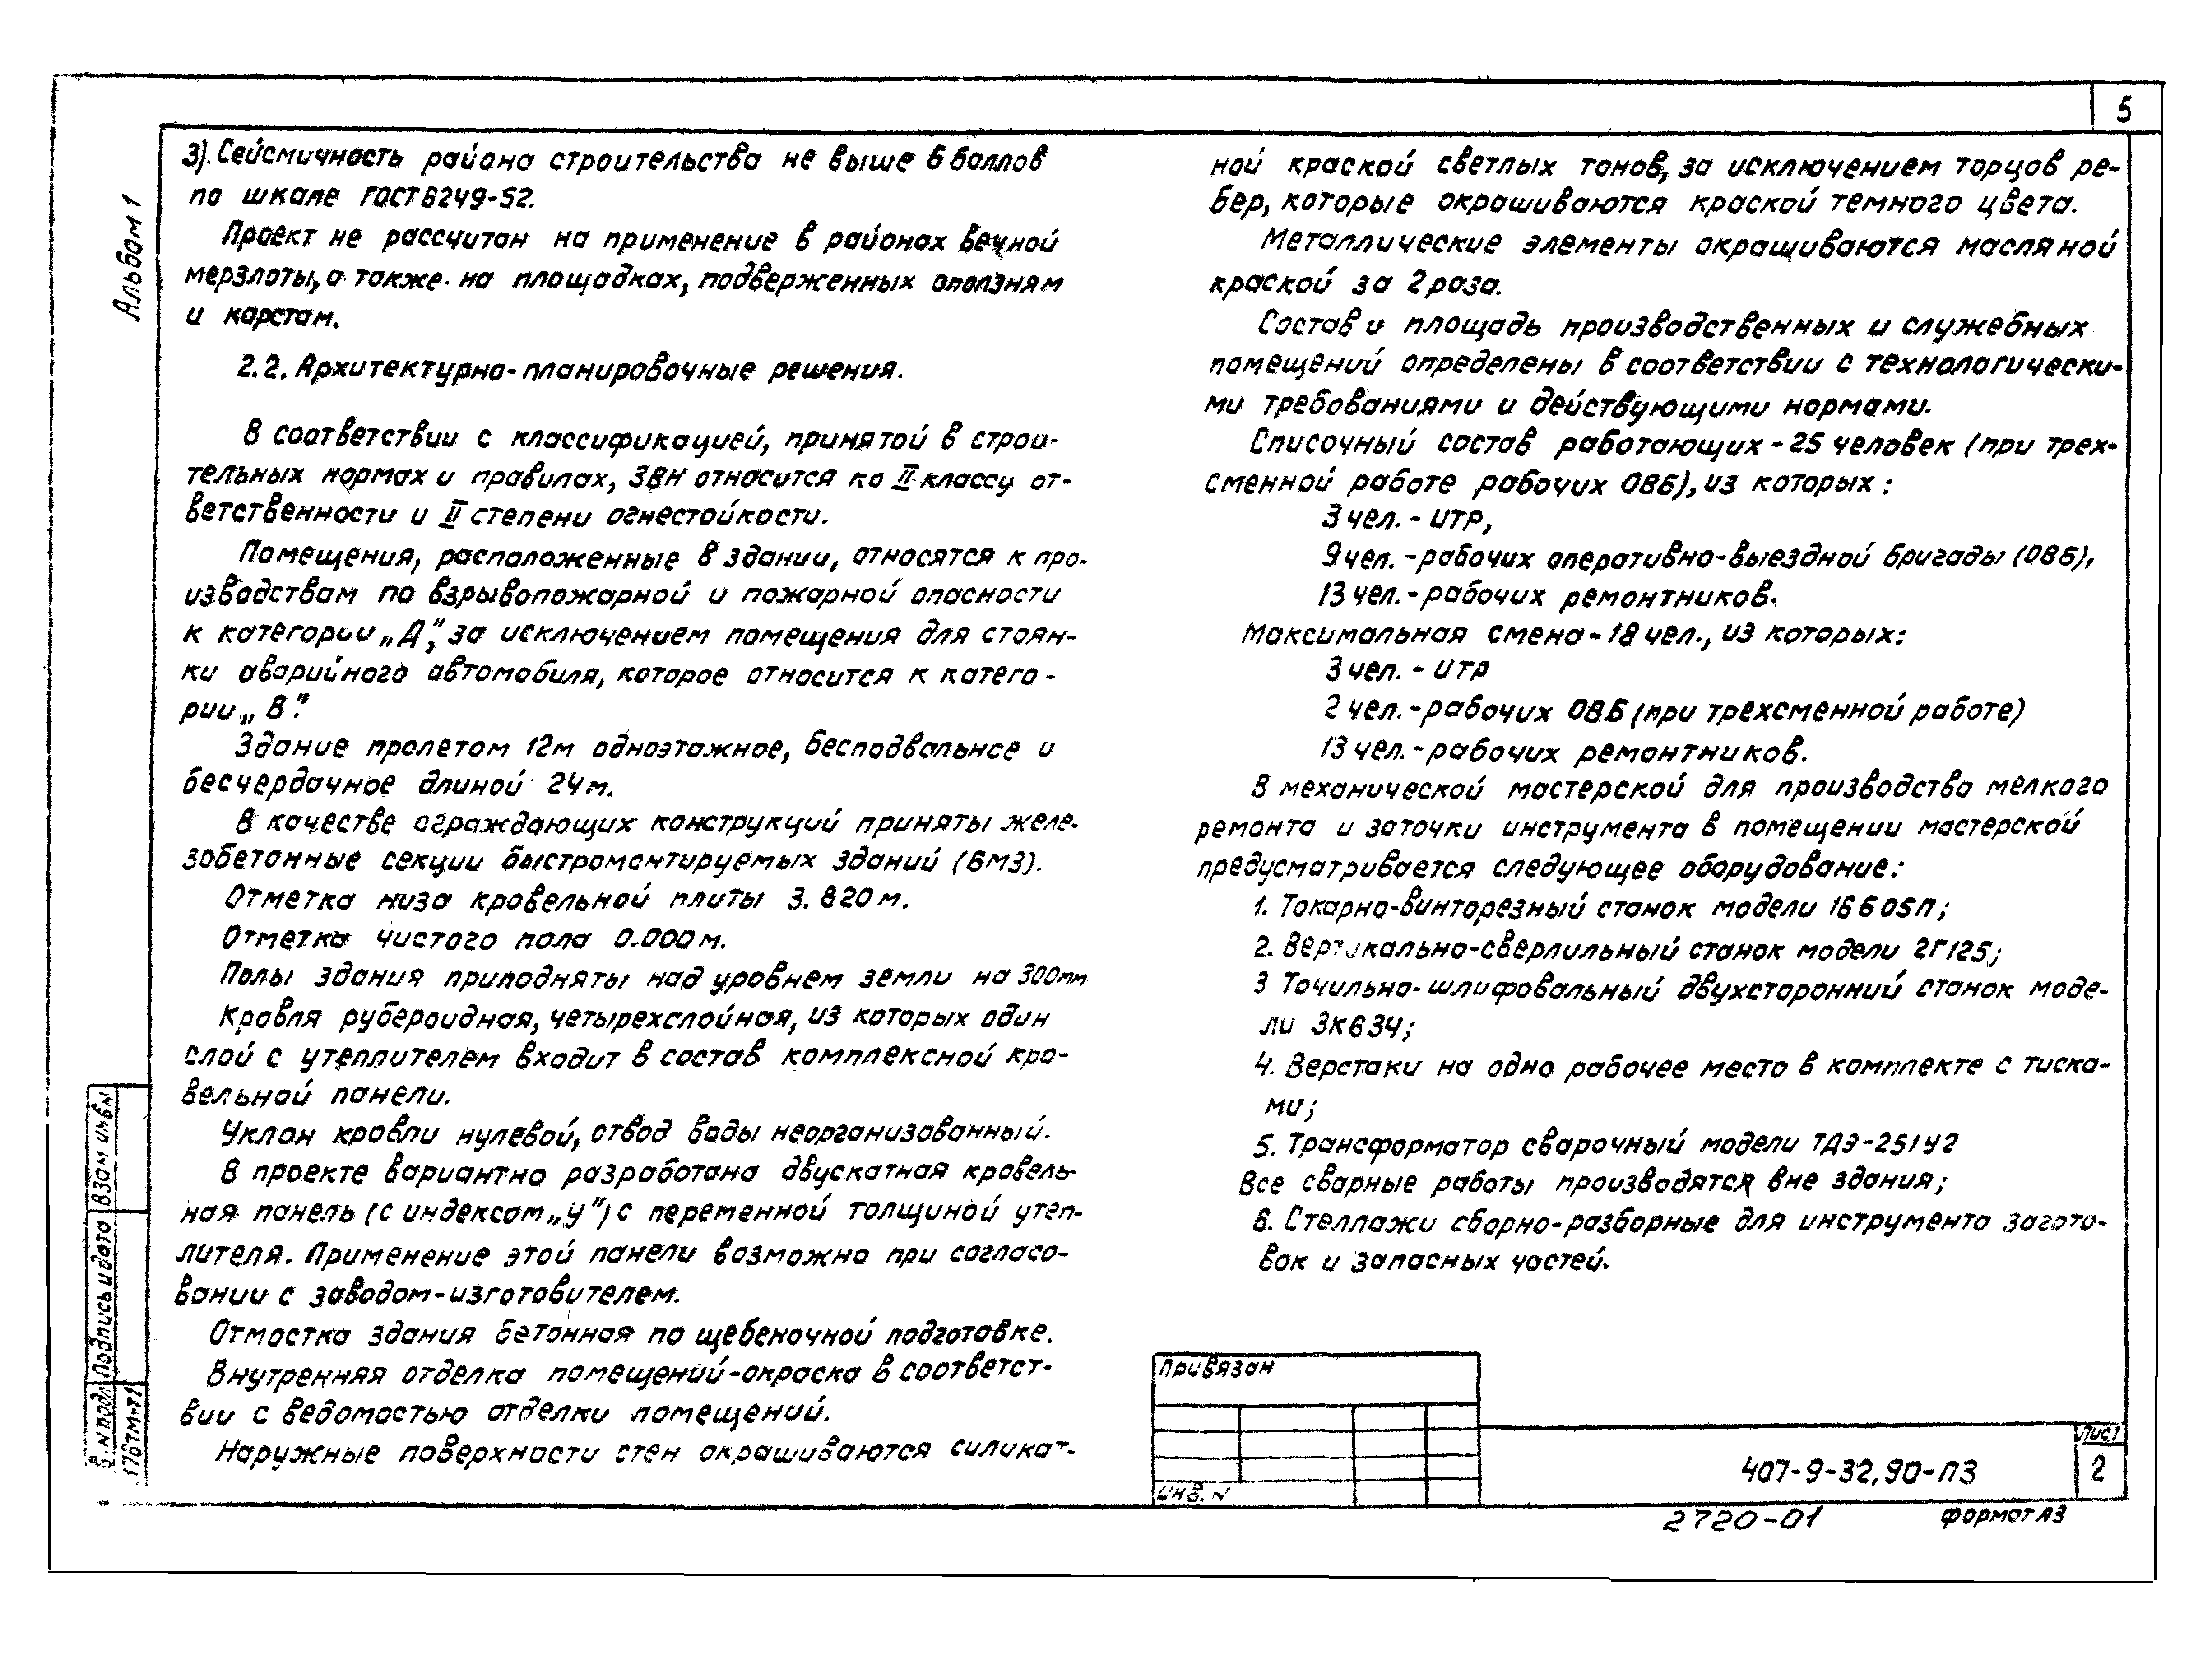 5
Альбом 1
3). Сейсмичность района строительства не выше 6 баллов
по шкале ГОСТ 6249-52.
Проект не рассчитан на применение в районах вечной
мерзлоты, а также на площадках, подверженных оползням
и карстам.
2.2. Архитектурно-планировочные решения.
В соответствии с классификацией, принятой в строи-
тельных нормах и правилах, ЗВН относится ко II классу от-
ветственности и II степени огнестойкости.
Помещения, расположенные в здании, относятся к про-
изводствам по взрывопожарной и пожарной опасности
к категории „Д", за исключением помещения для стоян-
ки аварийного автомобиля, которое относится к катего-
рии „В".
Здание пролетом 12м одноэтажное, бесподвальное и
бесчердачное длиной 24м.
В качестве ограждающих конструкций приняты желе-
зобетонные секции быстромонтируемых зданий (БМЗ).
Отметка низа кровельной плиты 3.820м.
Отметка чистого пола 0.000м.
Полы здания приподняты над уровнем земли на 300мм
Кровля рубероидная, четырехслойная, из которых один
слой с утеплителем входит в состав комплексной кро-
вельной панели.
Уклон кровли нулевой, отвод воды неорганизованный.
В проекте вариантно разработана двускатная кровель-
ная панель (с индексом „У") с переменной толщиной утеп-
лителя. Применение этой панели возможно при согласо-
вании с заводом-изготовителем.
Отмостка здания бетонная по щебеночной подготовке.
Внутренняя отделка помещений-окраска в соответст-
вии с ведомостью отделки помещений.
Наружные поверхности стен окрашиваются силикат-
ной краской светлых тонов, за исключением торцов ре-
бер, которые окрашиваются краской темного цвета.
Металлические элементы окращиваются масляной
краской за 2 раза.
Состав и площадь производственных и служебных
помещений определены в соответствии с технологически-
ми требованиями и действующими нормами.
Списочный состав работающих - 25 человек (при трех-
сменной работе рабочих ОВБ), из которых:
3 чел. - ИТР,
9 чел. - рабочих оперативно-выездной бригады (ОВБ),
13 чел. - рабочих ремонтников.
Максимальная смена - 18 чел., из которых:
3 чел. - ИТР
2 чел. - рабочих ОВБ (при трехсменной работе)
13 чел. - рабочих ремонтников.
В механической мастерской для производства мелкого
ремонта и заточки инструмента в помещении мастерской
предусматривается следующее оборудование:
1. Токарно-винторезный станок модели 16Б05П;
2. Вертикально-сверлильный станок модели 2Г125;
3 Точильно-шлифовальный двухсторонний станок моде-
ли 3К634;
4. Верстаки на одно рабочее место в комплекте с тиска-
ми;
5. Трансформатор сварочный модели ТДЭ-251У2
Все сварные работы производятся вне здания;
6. Стеллажи сборно-разборные для инструмента загото-
вок и запасных частей.
Привязан
Инв. N
407-9-32.90-ПЗ
Лист
2
2720-01
Формат А3
Взам инв N
Подпись и дата
N подл